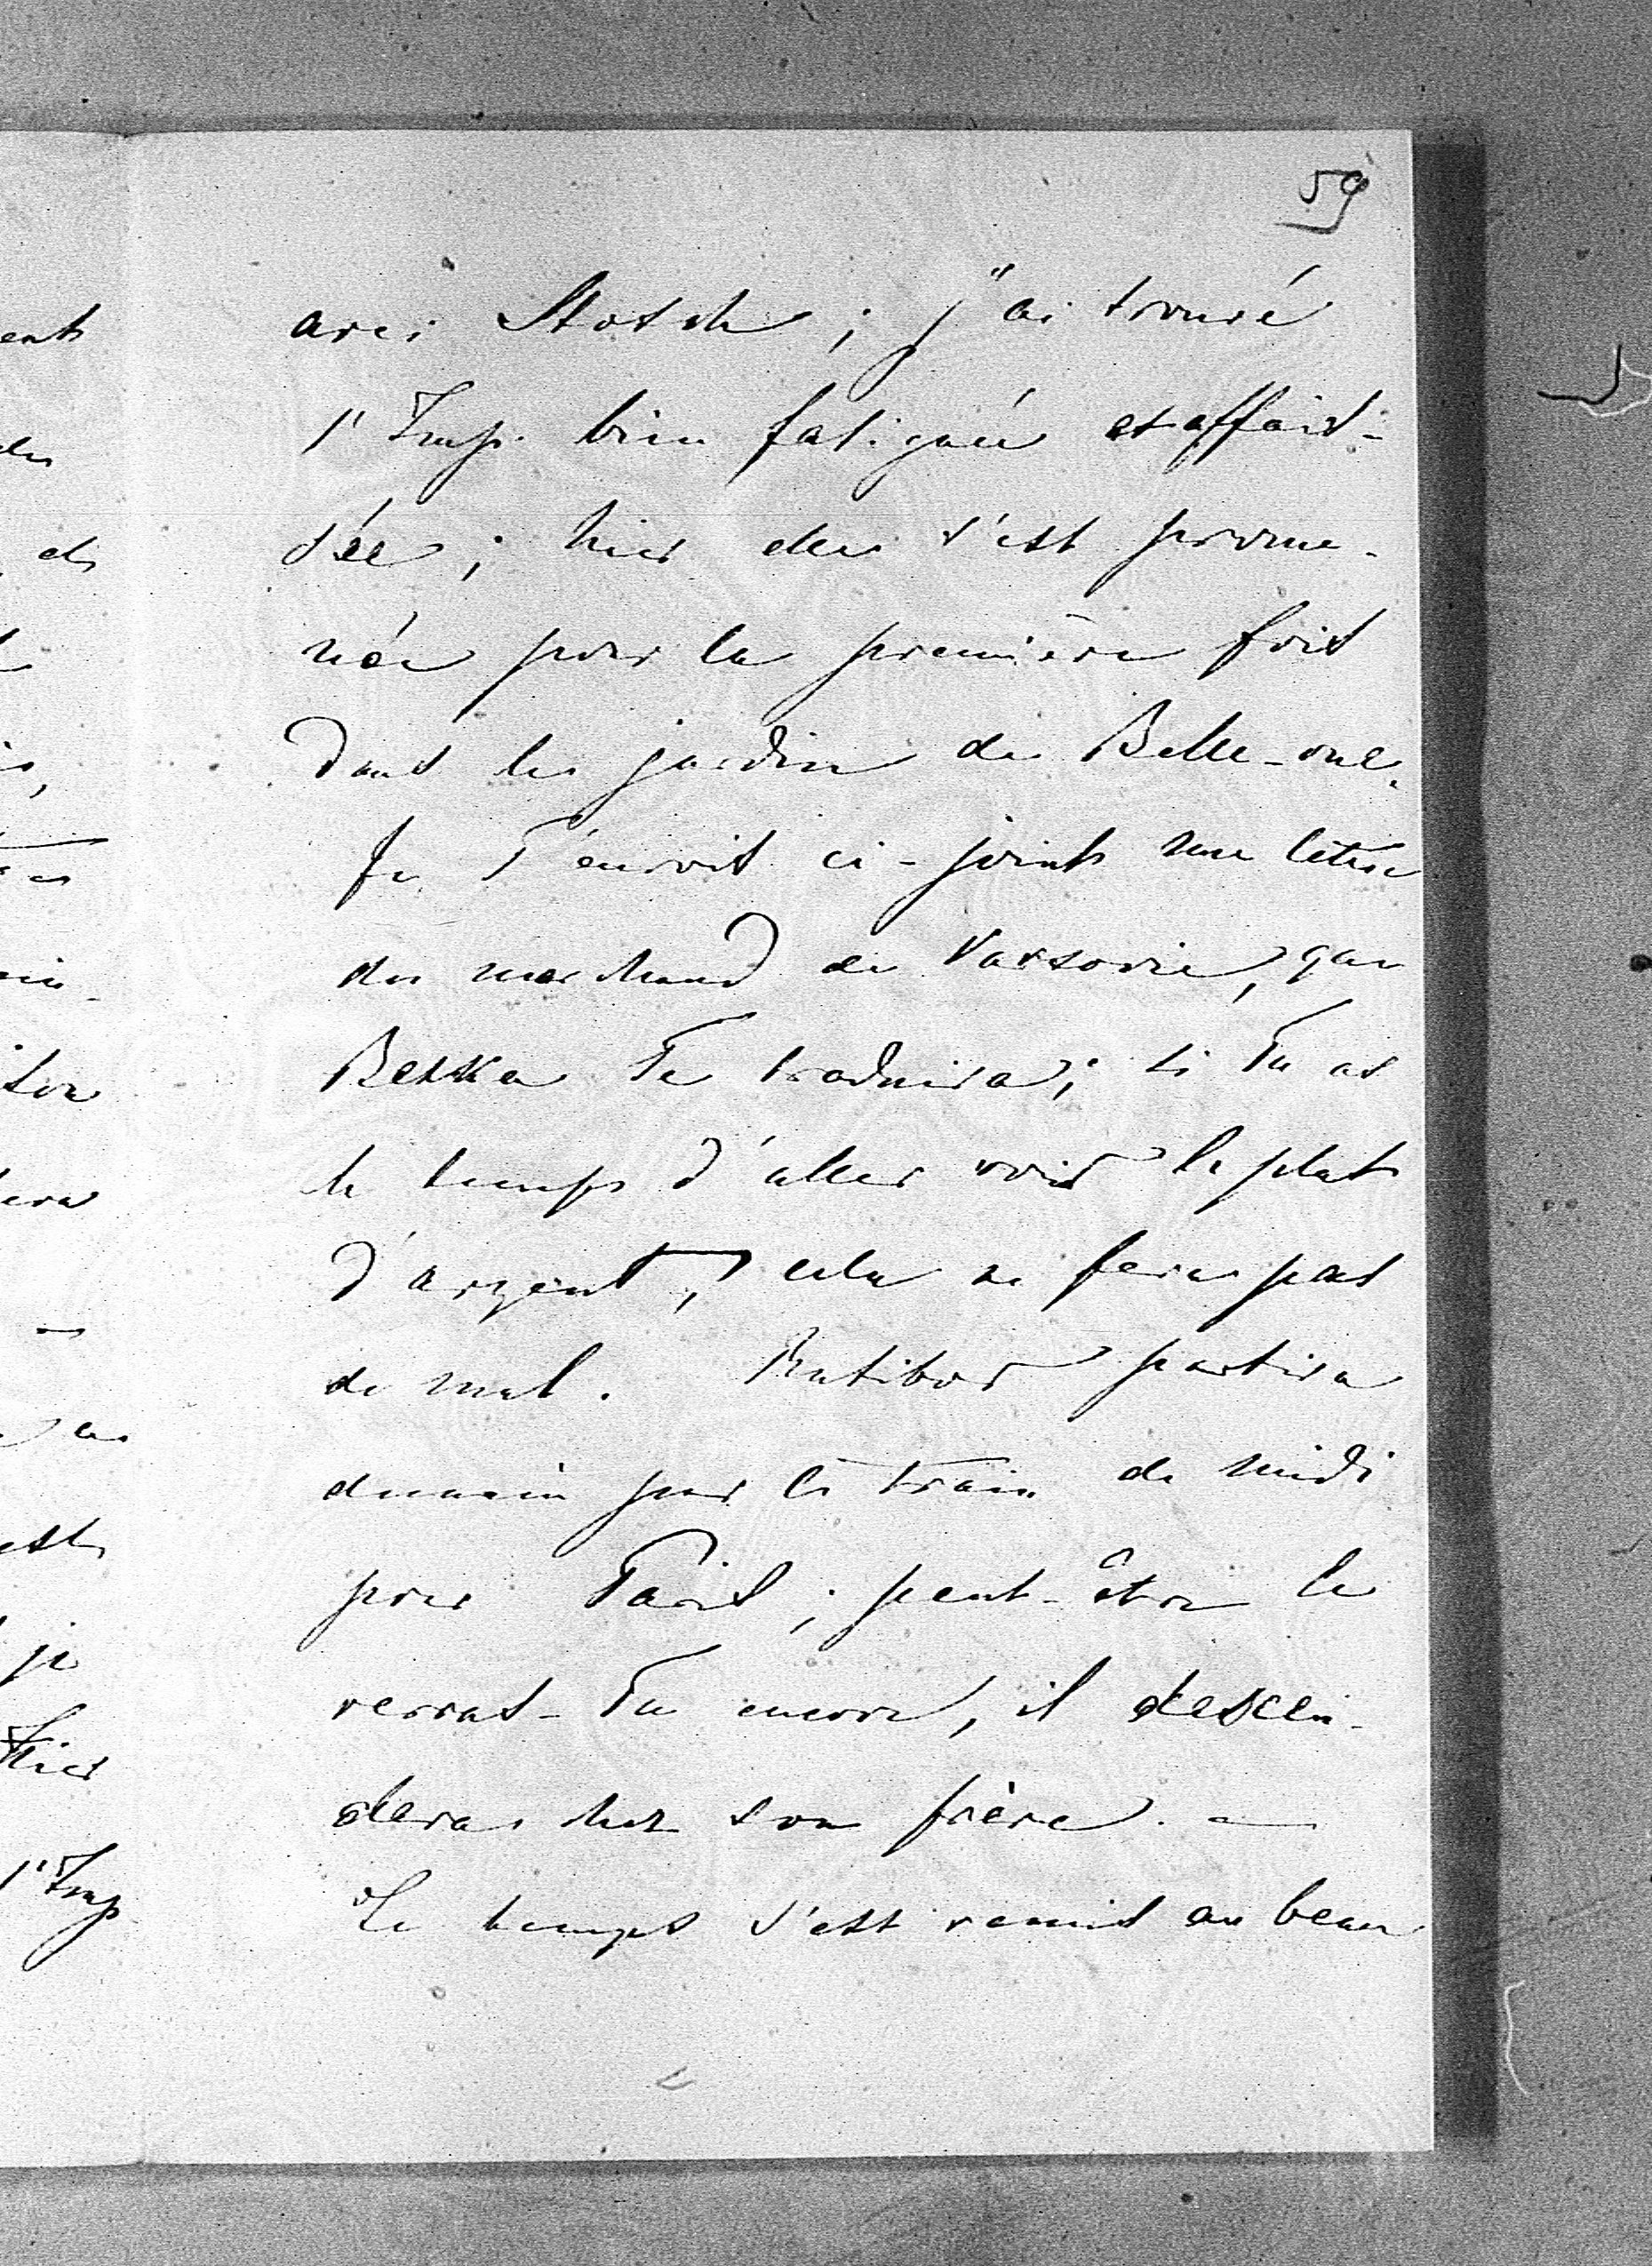 59
avec Stosch ; j'ai trouvé
l'Imp. bien fatiguée et affais-
sée ; hier elle s'est prome-
née pour la première fois
dans le jardin de Belle-vue.
Je T'envois ci-joint une lettre
du marchand de Varsovie, que
Betska Te traduira ; si Tu as
le temps d'aller voir le plat
d'argent, cela ne fera pas
de mal. Ratibor partira
demain par le train de midi
pour Paris ; peut-être le
verras-Tu encore, il descen-
dera chez son frère. —
Le temps s'est remis au beau